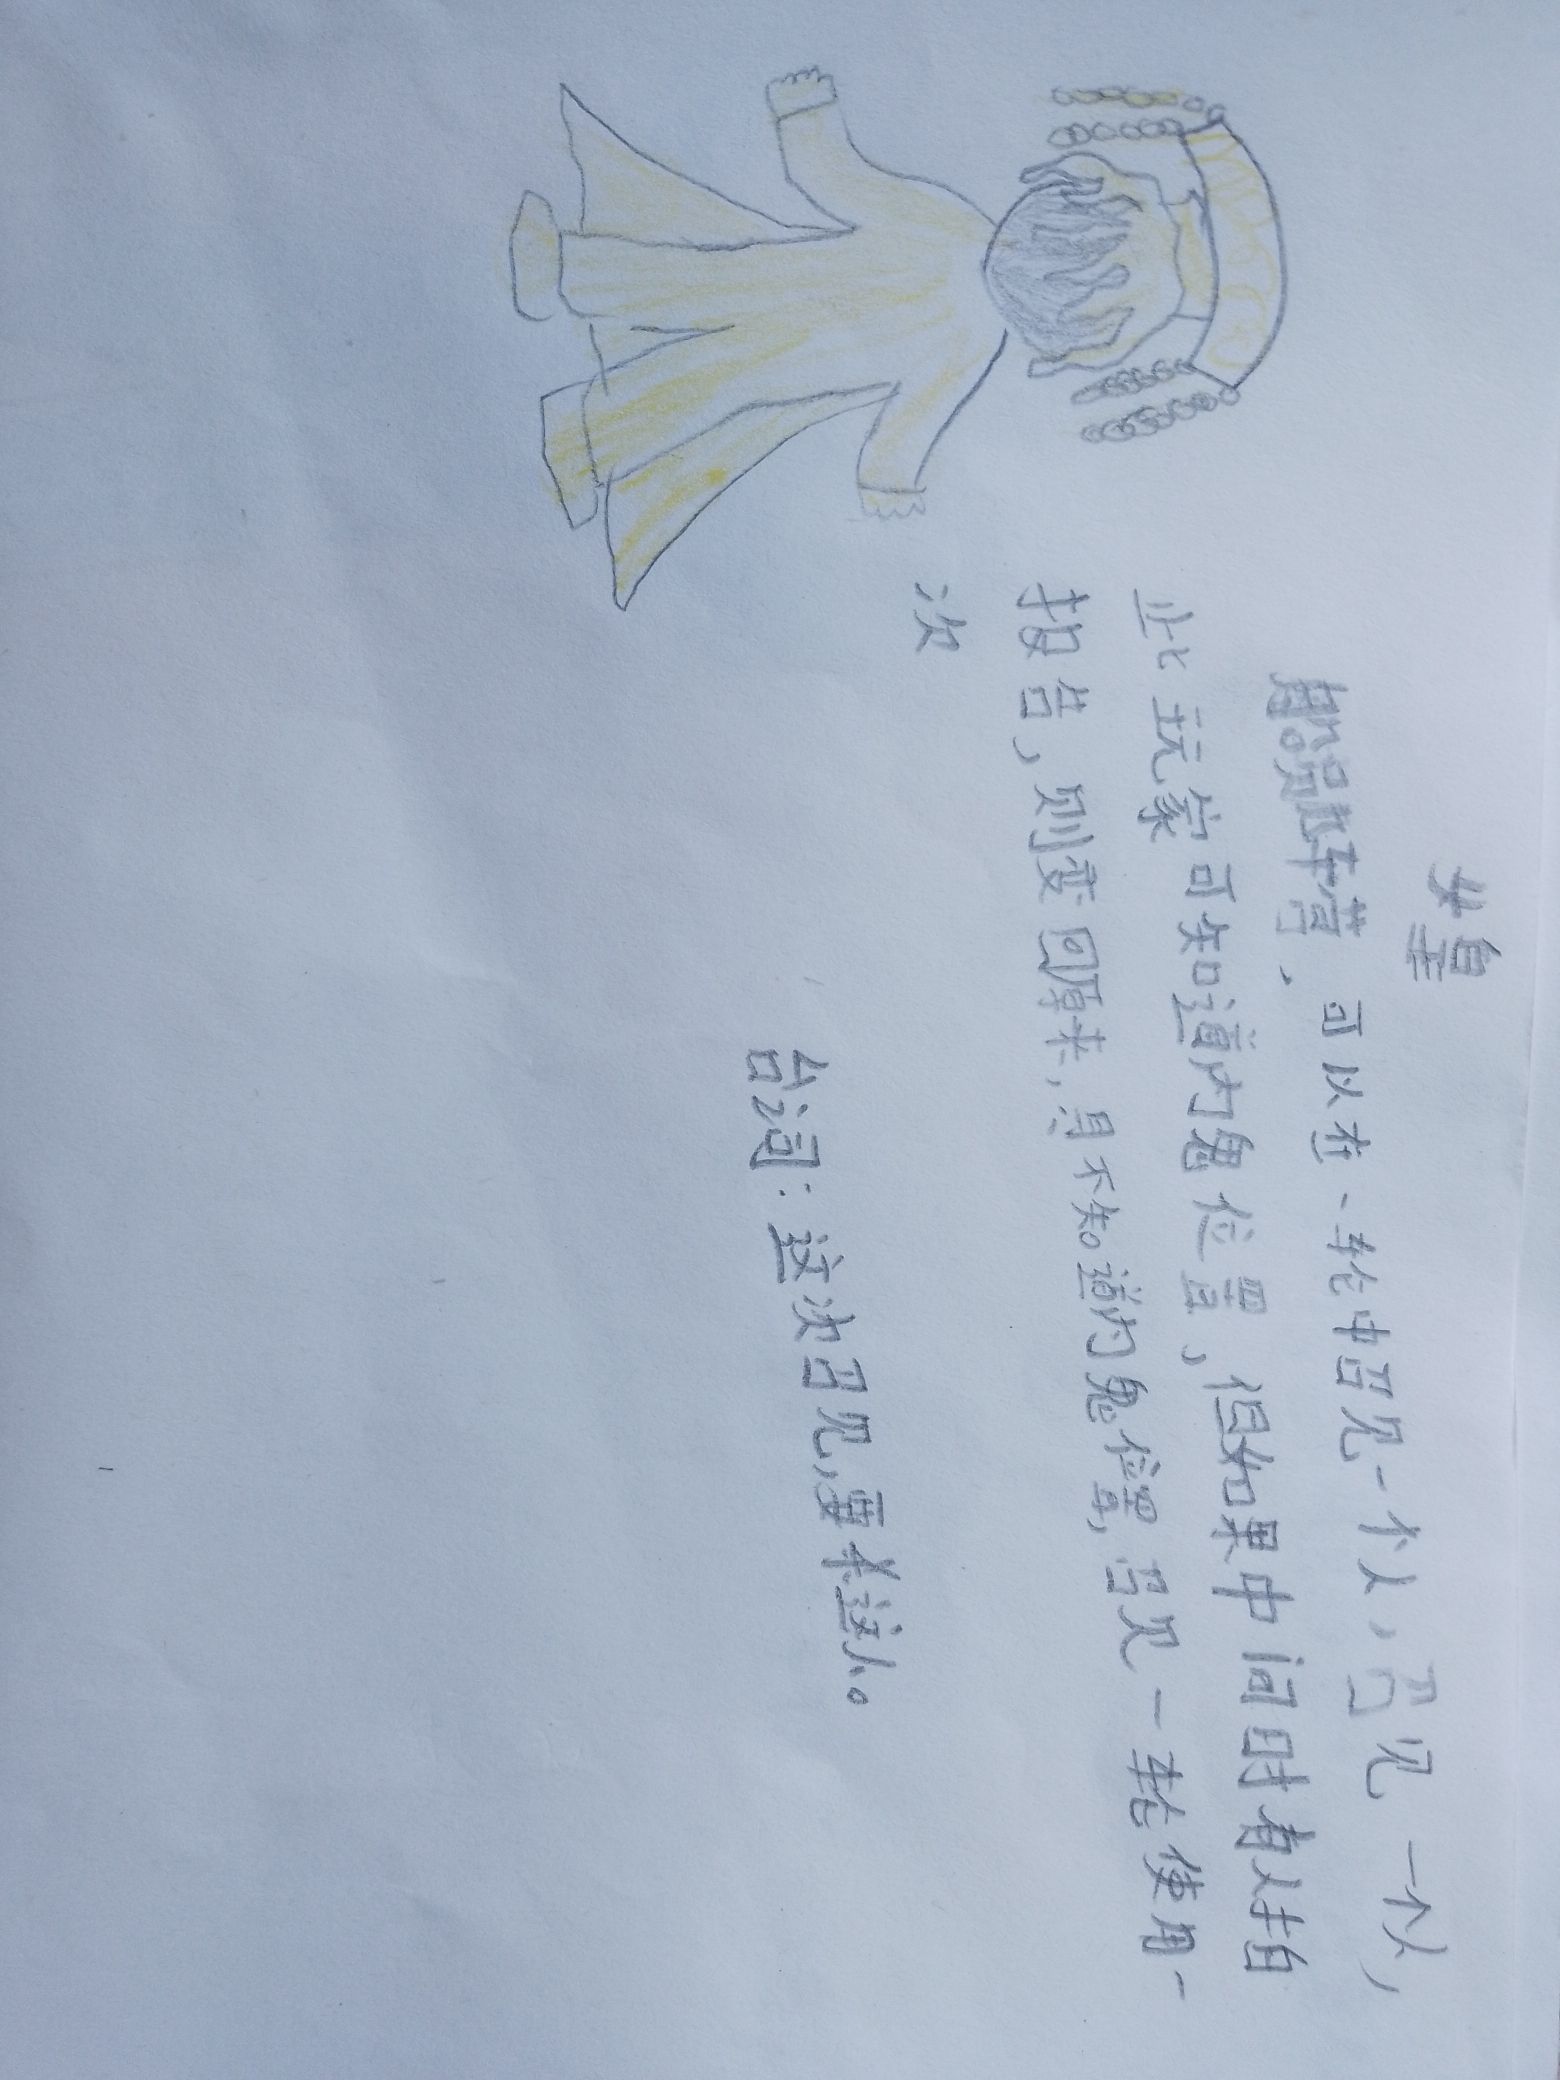 女皇
船员阵营，可以在一轮中召见一个人，召见一个人，
此玩家可知道内鬼位置，但如果中间时有人拍
报告，则变回原来，且不知道内鬼位置，召见一轮使用一
次
台词：这次召见，要来这